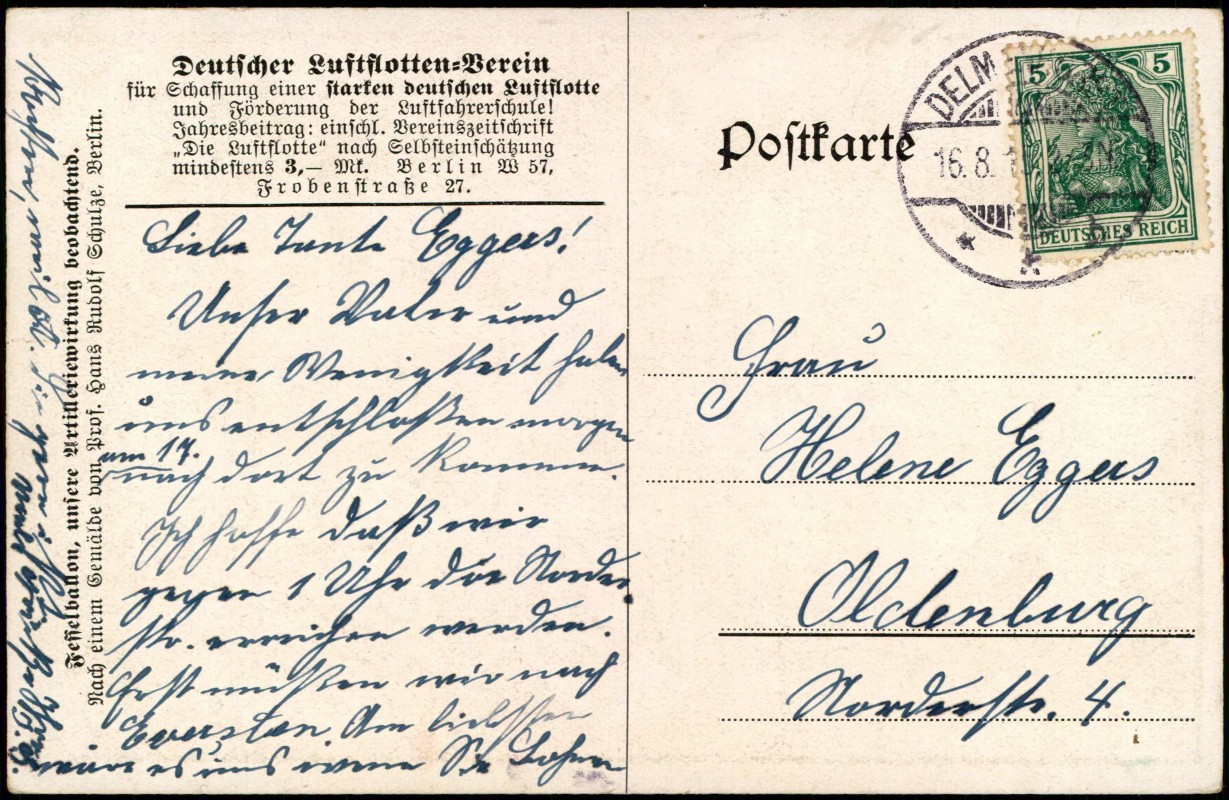 Deutscher Luftflotten-Verein
für Schaffung einer starken deutschen Luftflotte
und Förderung der Luftfahrerschule!
Jahresbeitrag: einschl. Vereinszeitschrift
„Die Luftflotte“ nach Selbsteinschätzung
mindestens 3,— Mk. Berlin W 57,
Frobenstraße 27.
Liebe Tante Eggers!
Unser Vater und
meine Wenigkeit haben
uns entschloßen morgen
am 17.
nach dort zu kommen.
Ich hoffe daß wir
gegen 1 Uhr die Norder
str. erreichen werden.
Erst müßen wir nach
Eversten. Am liebsten
wäre es uns wenn Sie Bohnen
Fesselballon, unsere Artilleriewirkung beobachtend.
Nach einem Gemälde von Prof. Hans Rudolf Schulze, Berlin.
Postkarte
DELM
16.8.1
5 5
DEUTSCHES REICH
Frau
Helene Eggers
Oldenburg
Norderstr. 4.